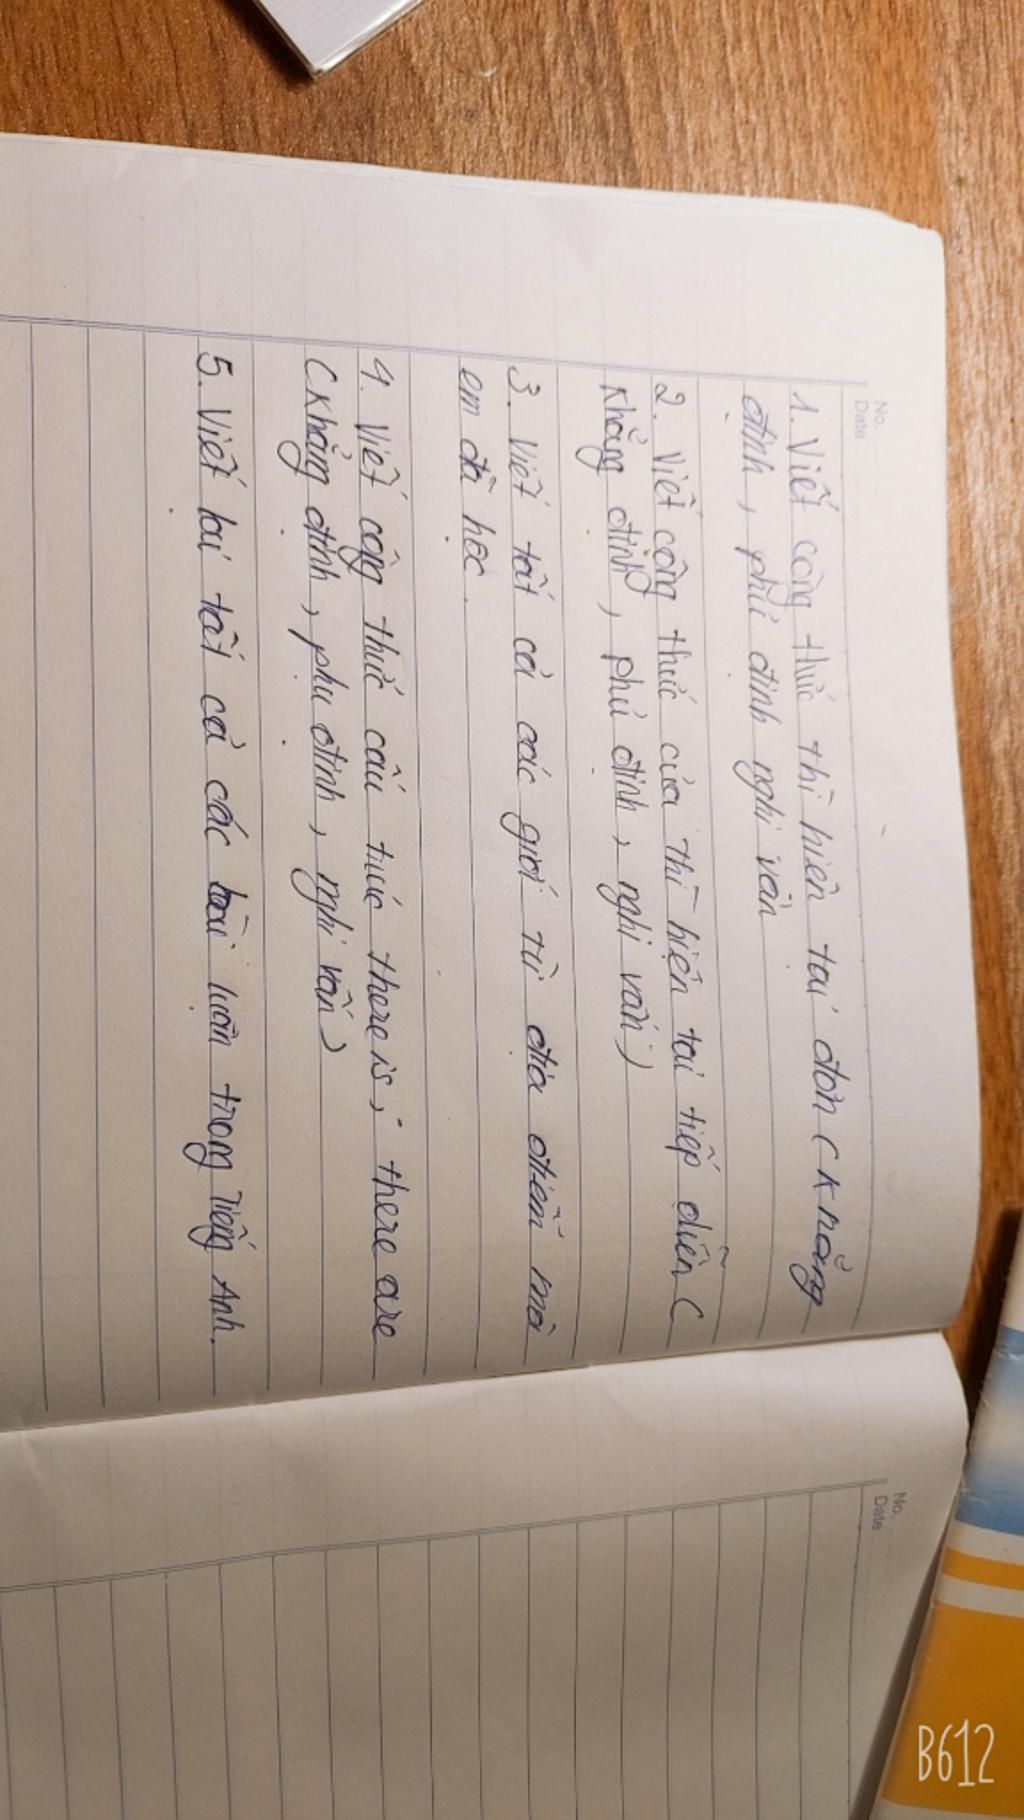 No.
Date
1. Viết công thức thì hiện tại đơn ( khẳng
định, phủ định nghi vấn
2. Viết công thức của thì hiện tại tiếp diễn (
khẳng định, phủ định, nghi vấn)
3. Viết tất cả các giới từ địa điểm mà
em đã học.
4. Viết công thức cấu trúc there is; there are
(khẳng định, phụ định, nghi vấn)
5. Viết lại tất cả các luận trong Tiếng Anh.
No.
Date
B612